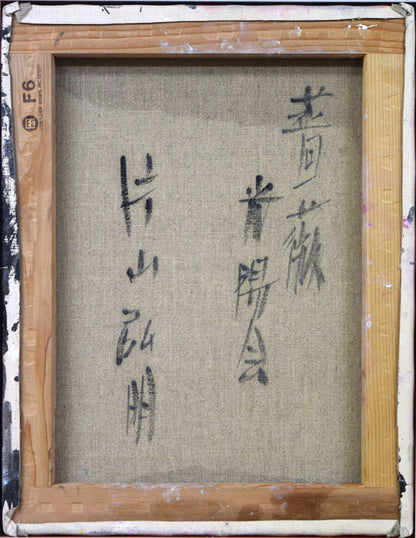 薔薇
春陽会
片山弘明
F6